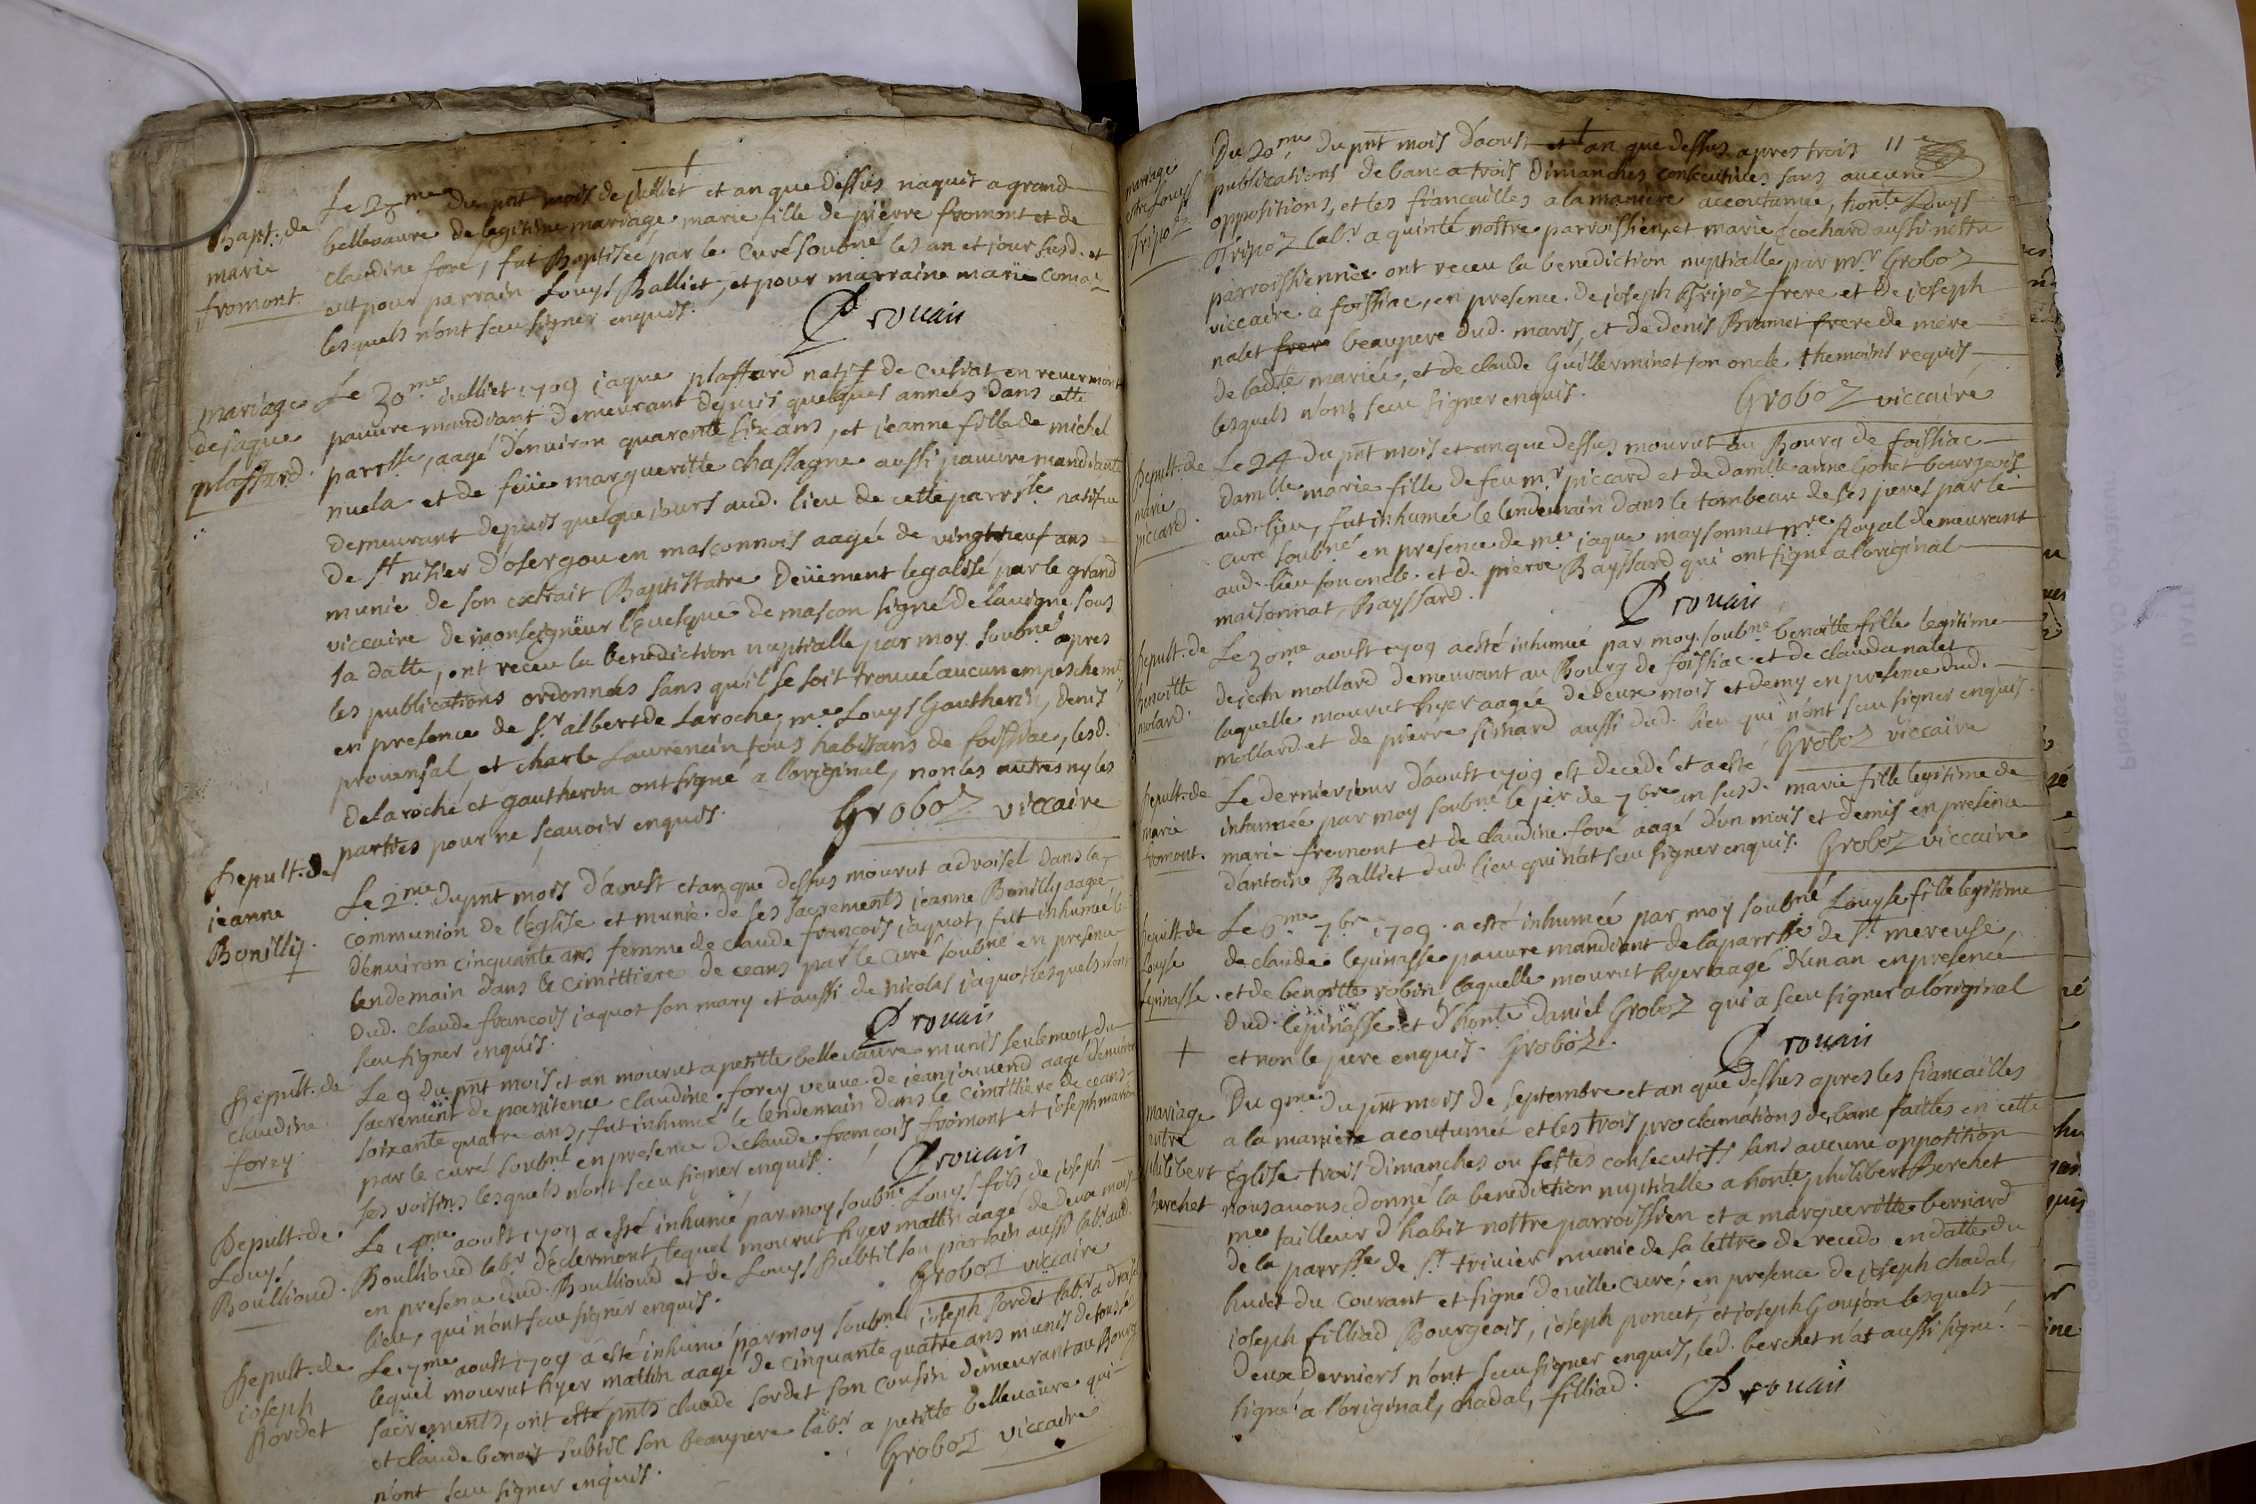 Bapt. de
marie
fromont
Le 25me du pnt mois de juilliet et an que dessus naquit a grand
bellevavre de legitime mariage marie fille de pierre fromont et de
claudine foré, fut Baptisée par le Curé soubné les an et jour susd. et
eut pour parrain Louys Balliet, et pour marraine marie
lesquels n'ont sceu signer enquis.
Prouais
mariage
de jaque
plaffard
Le 30me Julliet 1709 jaque plaffard natif de Cusiat en revermont
pauvre mandiant demeurant depuis quelques années dans cette
parrsse, aagé d'environ quarente six ans, et jeanne fille de michel
nuela et de feue marguerite chassagne aussi pauvre mandiante
demeurant depuis quelque jours aud. lieu de cette parrsse natifve
de st nisier d'osergou en masconnois aagée de vingtneuf ans
munie de son extrait Baptistaire deüement legalisé par le grand
viccaire de monseigneur l'Evesque de mascon signé delavigne sous
sa datte, ont receu la benediction nuptialle par moy soubné apres
les publications ordonnées sans qu'il se soit trouvé aucun empeschemt
en presence de sr albert de Laroche, me Louys Gautheron, Denis
provensal, et charle Laurencin tous habitans de foissiac, lesd.
delaroche et gautheron ont signé a l'original, non les autres ny les
parties pour ne scavoir enquis.
Groboz viccaire
Sepult. de
jeanne
Bonilly.
Le 2me du pnt mois d'aoust et an que dessus mourut a dvoisel dans la
communion de l'Eglise et munie de ses sacrements jeanne Bonilly aagée
d'environ cinquante ans femme de claude francois jaquot, fut inhumée le
lendemain dans le cimittiere de ceans par le Curé soubné en presence
dud. claude francois jaquot son mary et aussi de nicolas jaquot lesquels n'ont
sceu signer enquis.
Prouais
Sepult. de
claudine
forey.
Le 9 du pnt mois et an mourut a petitte bellevavre munis seulement du
sacrement de poenitence claudine forey veuve de jean jouvend aagé d'environ
soixante quatre ans, fut inhumé le lendemain dans le cimittiere de ceans
par le curé soubné en presence de claude francois fromont et joseph
ses voisins lesquels n'ont sceu signer enquis.
Prouais
Sepult. de
Louys
Boullioud.
Le 14me aoust 1709 a esté inhumé par moy soubné Louys fils de joseph
Boullioud labr declermont, lequel mourut hyer mattin aagé de deux mois
en presence dud. Boullioud et de Louys subtil son parrain aussi labr aud.
lieu, qui n'ont sceu signer enquis.
Groboz viccaire
Sepult. de
joseph
Sordet
Le 17me aoust 1709 a esté inhumé par moy soubné joseph sordet labr a
lequel mourut hyer mattin aagé de cinquante quatre ans munis de tous ses
sacrements, ont esté pnts claude sordet son cousin demeurant au Bourg
et claude benoit subtil son beaupere labr a petitte bellevavre qui
n'ont sceu signer enquis.
Groboz viccaire
11e
mariage
entre Louys
Tripoz
Du 20me du pnt mois d'aoust et an que dessus apres trois
publications de banc a trois dimanches consecutives sans aucune
oppositions, et les fiancailles a la maniere accoutumée, honte Louys
Tripoz labr a quinte nostre parroissien, et marie Cochard aussi nostre
parroissienne ont receu la benediction nuptialle par mr Groboz
viccaire a foissiac, en presence de joseph Tripoz frere et de joseph
nalet frere beaupere dud. mariés, et de denis Bramet frere de mere
de ladte mariée, et de claude Guillerminet son oncle themoins requis,
lesquels n'ont sceu signer enquis.
Groboz viccaire
Sepult. de
marie
piccard.
Le 24 du pnt mois et an que dessus mourut au Bourg de foissiac
damlle marie fille de feu mr piccard et de damlle anne Gonet bourgeois
aud. lieu, fut inhumée le lendemain dans le tombeau de ses peres par le
curé soubné en presence de me jaque maysonnat nre Royal demeurant
aud. lieu son oncle et de pierre Bayssard qui ont signé a l'original
maisonnat, Bayssard.
Prouais
Sepult. de
benoitte
molard.
Le 30me aoust 1709 a esté inhumée par moy soubné benoitte fille legitime
de jean mollard demeurant au Bourg de foissiac et de claudanalet
laquelle mourut hyer aagée de deux mois et demy en presence dud.
mollard et de pierre simard aussi dud. lieu qui n'ont sceu signer enquis.
Groboz viccaire
Sepult. de
marie
fromont.
Le dernier jour d'aoust 1709 est decedé et a esté
inhumée par moy soubné le jer de 7bre an susd. marie fille legitime de
marie fromont et de claudine foré aagé d'un mois et demis en presence
d'antoine Balliet dud. lieu qui n'at sceu signer enquis.
Groboz viccaire
Sepult. de
Louyse
lepinasse.
Le 6me 7bre 1709 a esté inhumée par moy soubné Louyse fille legitime
de claude lepinasse pauvre mandiant de la parrsse de st mereuse,
et de benoitte robin, laquelle mourut hyer aagé d'un an en presence
dud. lepinasse et d'honte daniel Groboz qui a sceu signer a l'original
et non le pere enquis. Groboz.
Prouais
mariage
entre
philibert
berchet
Du 9me du pnt mois de septembre et an que dessus apres les fiancailles
a la maniere acoutumée et les trois proclamations de banc faittes en cette
Eglise trois dimanches ou festes consecutifs sans aucune opposition
nous avons donné la benediction nuptialle a honte philibert Berchet
me tailleur d'habit nostre parroissien et a marguerite bernard
de la parrsse de st trivier munie de sa lettre de recedo en datte du
huict du courant et signé deville curé, en presence de joseph chadal,
joseph filliad Bourgeois, joseph poncet, et joseph Goujon lesquels
deux derniers n'ont sceu signer enquis, led. berchet n'at aussi signé.
signé a l'original, chadal, filliad.
Prouais